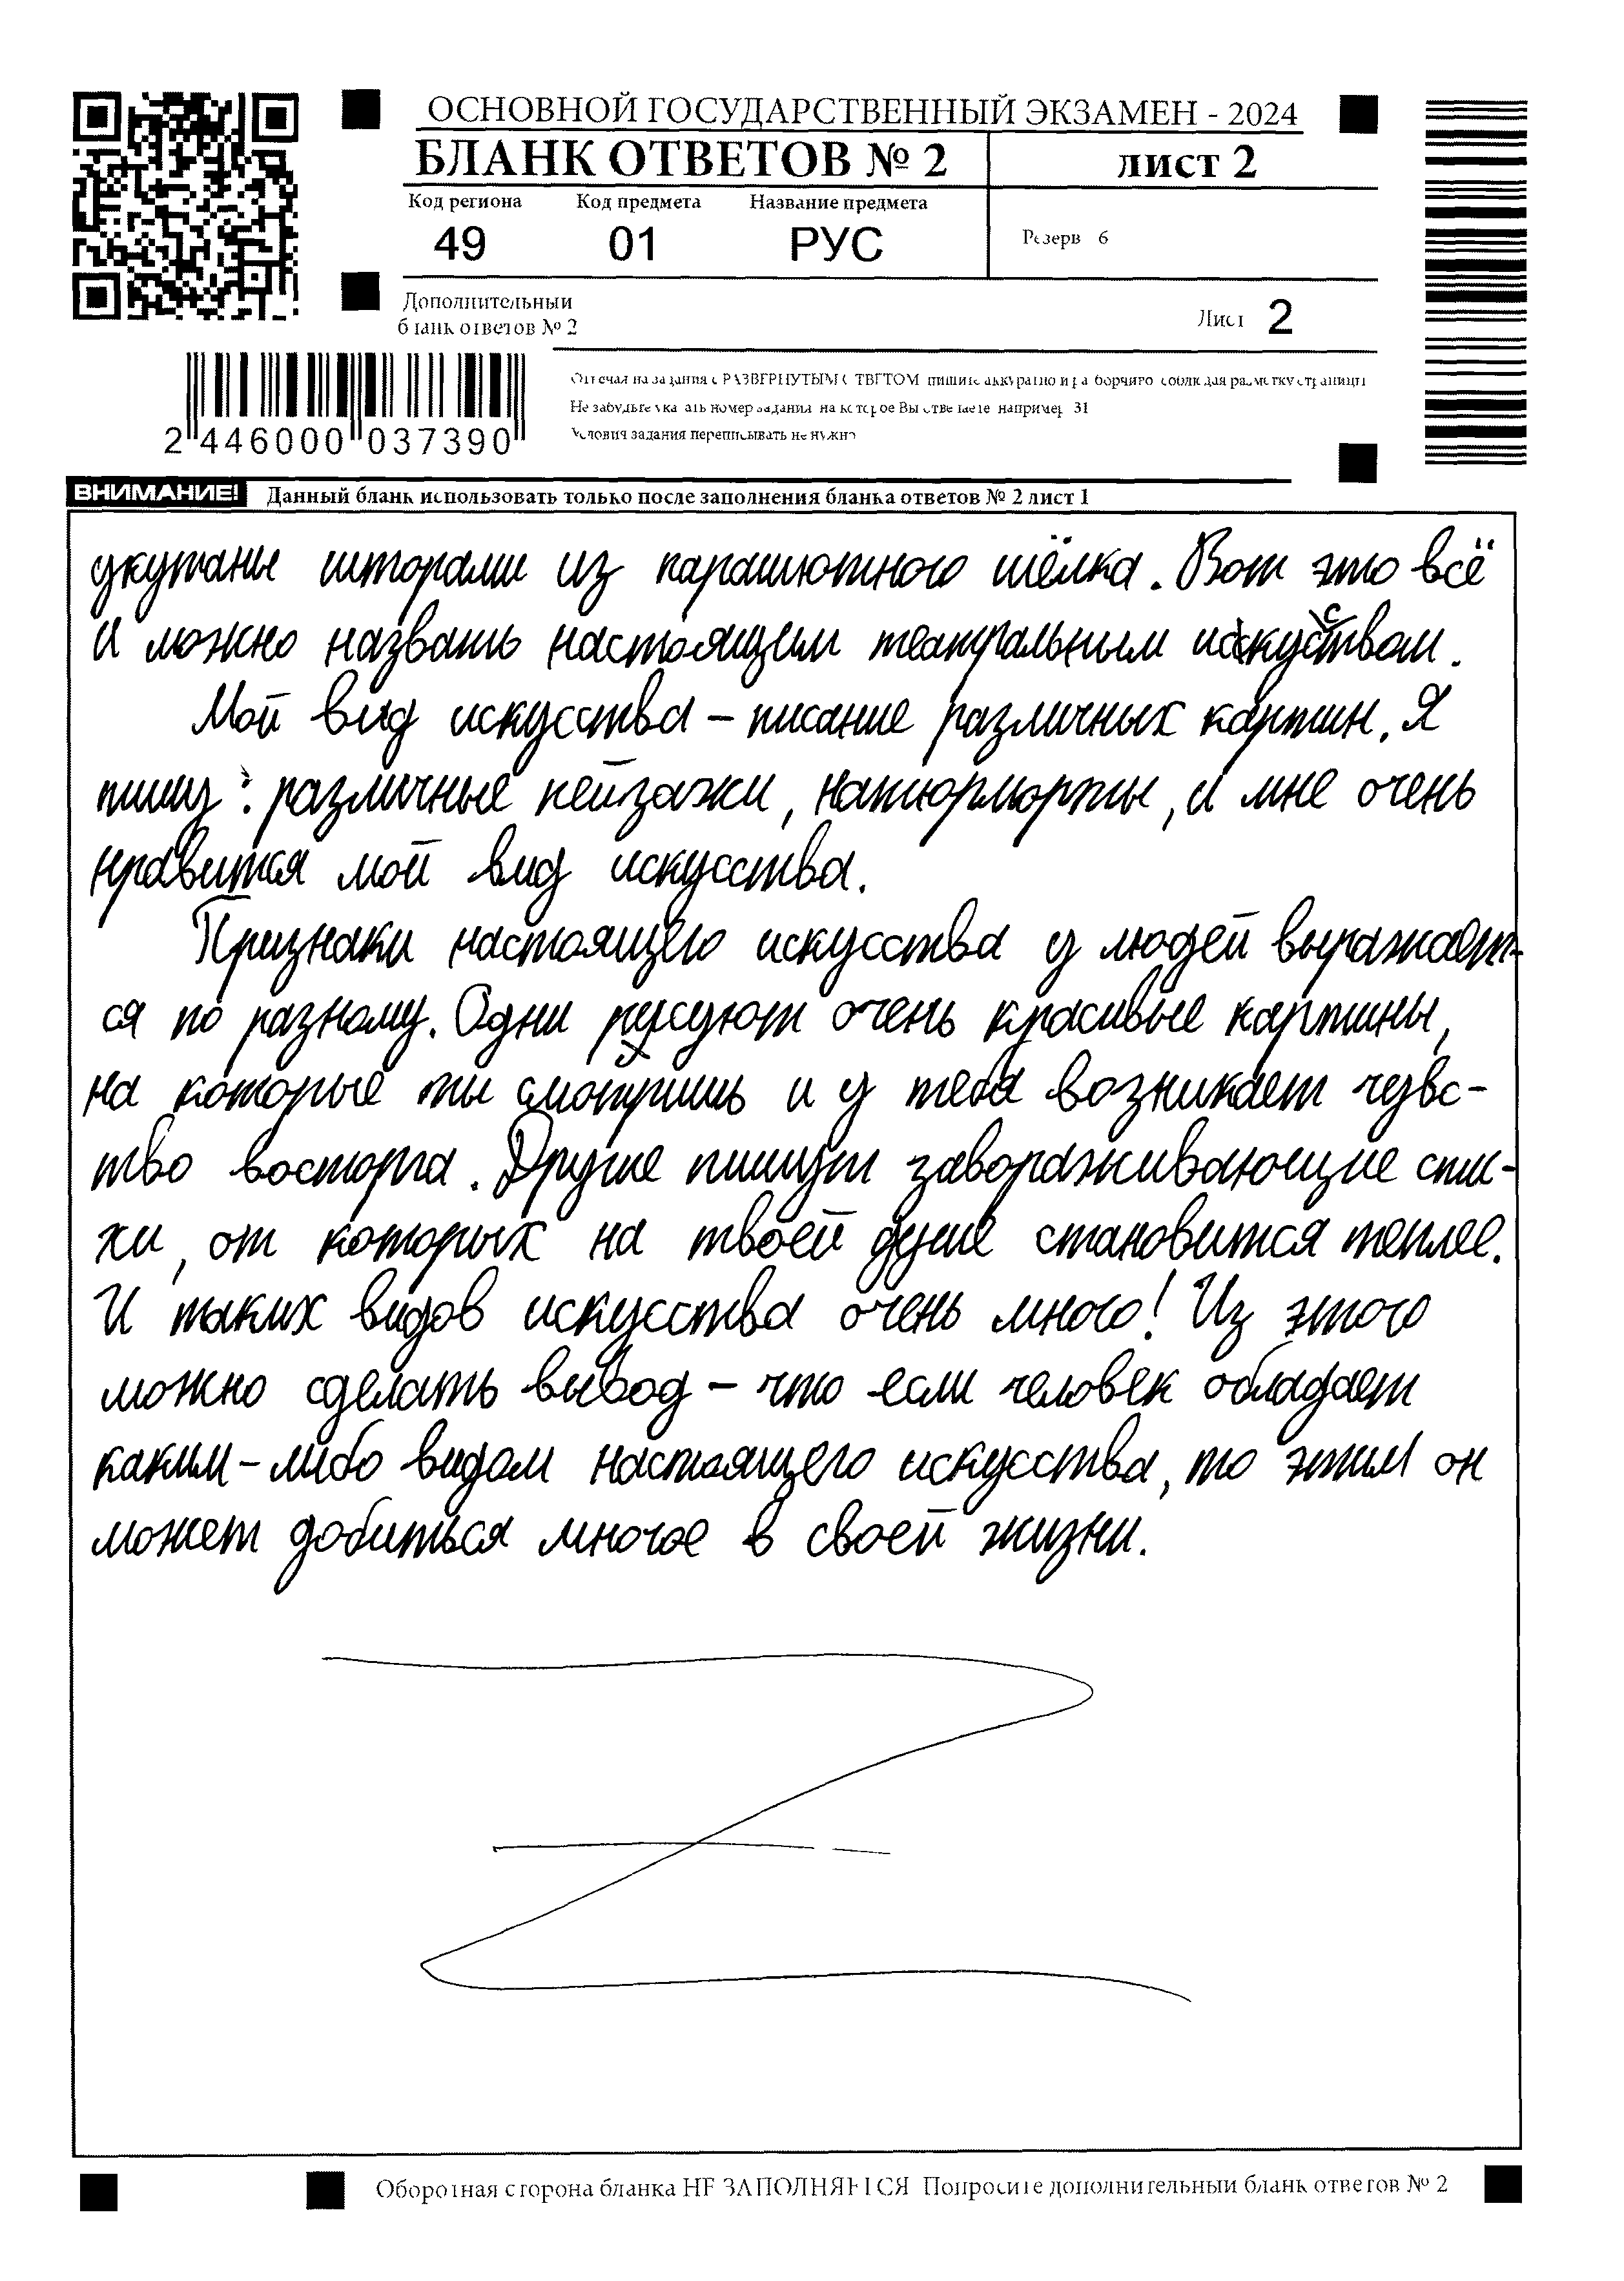 ОСНОВНОЙ ГОСУДАРСТВЕННЫЙ ЭКЗАМЕН - 2024
БЛАНК ОТВЕТОВ № 2
лист 2
Код региона Код предмета Название предмета
49 01 РУС
Резерв 6
Дополнительный
бланк ответов № 2
Лист 2
2 446000 037390
Отвечая на задания с РАЗВЕРНУТЫМ ОТВЕТОМ пишите аккуратно и разборчиво соблюдая разметку страницы
Не забудьте указать номер задания на которое Вы отвечаете например 31
Условия задания переписывать не нужно
ВНИМАНИЕ! Данный бланк использовать только после заполнения бланка ответов № 2 лист 1
укутаны шторами из парашютного шёлка. Вот это всё
и можно назвать настоящим театральным искусством.
Мой вид искусства – писание различных картин. Я
пишу: различные пейзажи, натюрморты, и мне очень
нравится мой вид искусства.
Признаки настоящего искусства у людей выражает-
ся по разному. Одни рисуют очень красивые картины,
на которые ты смотришь и у тебя возникает чувс-
тво восторга. Другие пишут завораживающие сти-
хи, от которых на твоей душе становится теплее.
И таких видов искусства очень много! Из этого
можно сделать вывод – что если человек обладает
каким-либо видом настоящего искусства, то этим он
может добиться многое в своей жизни.
Оборотная сторона бланка НЕ ЗАПОЛНЯЕТСЯ Попросите дополнительный бланк ответов № 2